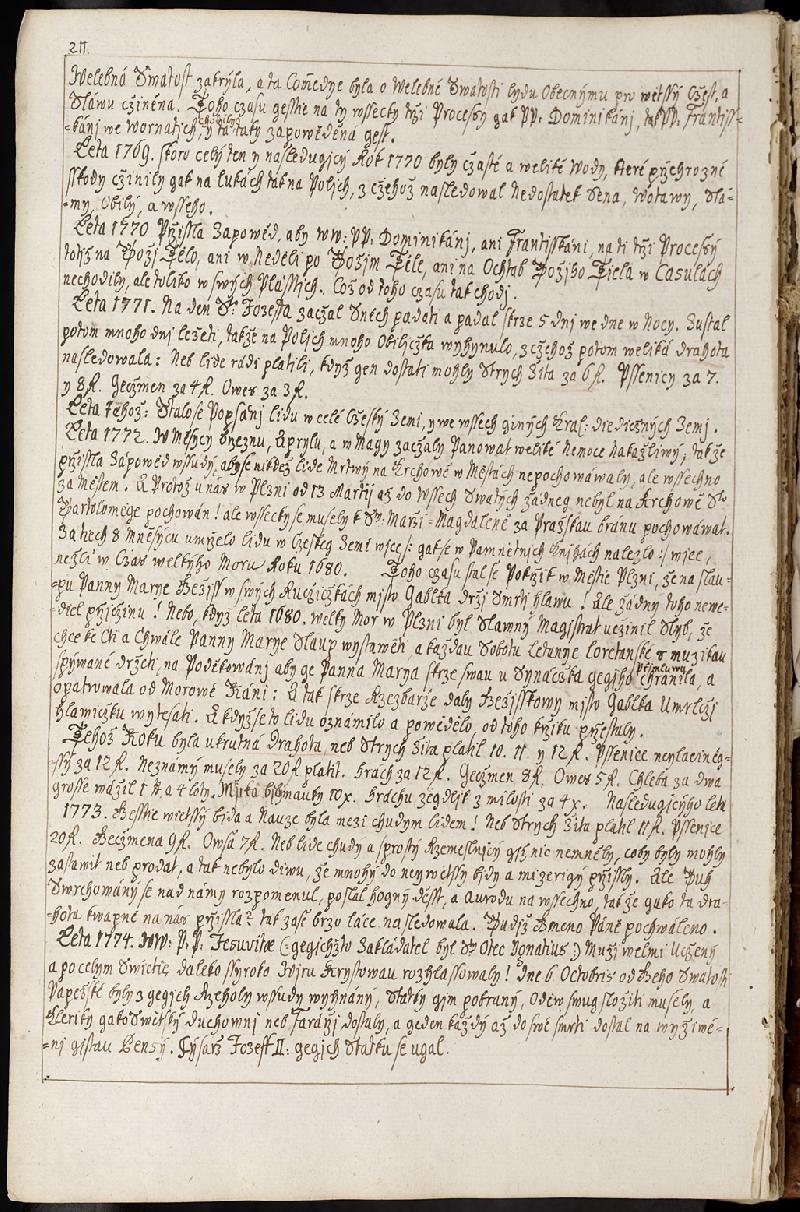 211.
Welebná Swatost zakryla, a ta Comedye byla o Welebné Swatosti bydu Obecnýmu pro wětssý Cžest, a
Sláwu cžiněna. Toho czasu gesstie na ty wssecky tržj Processy gak PP: Dominikánj, tak PP. Frantiss-
-kánj we Wornatjch chodily, y ta taky zapowěděna gest.
Léta 1769. skoro celý ten y následugjcý Rok 1770 byly cžasté a weliké Wody, které pržehrozné
sskody cžinily gak na lukách tak na Poljch, z cžehož následowal Nedostatek Sena, Wotawy, Slá-
-my, Obilý, a wsseho.
Léta 1770 Pržissla Zapowěd, aby WW: PP. Dominikánj, ani Frantisskáni, na ti tržj Processý
totiž na Božj Tělo, ani w Neděli po Božjm Těle, ani na Ochtab Božjho Tiela w Casulách
nechodily, ale toliko w swých Plásstjch. Což od toho czasu tak chodj.
Léta 1771. Na den S: Jozeffa zaczal Sněch padati a padal skrze 5 dnj we dne w Nocy. Zustal
potom mnoho dnj ležeti, takže na Poljch mnoho Obiljczka wyhynulo, z cžehož potom weliká drahota
následowala: Neb lidé rádi platili, když gen dostati mohly Strych Žita za 6 fl. Pssenicy za 7.
y 8 fl. Gecžmen za 4 fl. Owes za 3 fl.
Léta téhož: Stalo se Popsánj lidu w celé Cžeský Zemi, y we wssech giných Kral: diediczných Zemj.
Léta 1772. W Měsycy Brzeznu, Aprylu, a w Magy zaczaly Panowat weliké Nemoce Nakažliwý; tak že
pržissla Zápowěd wssudy, aby se nikdež lidé Mrtwý na Krchowě w Městách nepochowáwaly, ale wssechno
za Městem. A Protož u nás w Plzni od 13 Martij až do Wssech Swatých žádneg nebyl na Krchowě S:
Bartolomege pochowán! ale wssecky se musely k Sw. Marži-Magdaléně za Pražskau bránu pochowáwat.
Za těch 8 Měsýcu umrželo lidu w Cžeskeg Zemi wjce |: gak se w Pamnětných Knihách nalezlo :| wjce,
nežli w Czas welkýho Moru Roku 1680. Toho czasu stal se Pokržik w Městě Plzni, že na slau-
-pu Panny Marye Ježjss w swých Rucžicžkách mjsto Gablka držj Smrtj hlawu! Ale žádny toho newě-
-diel pržjcžinu! Nebo, když léta 1680. welký Mor w Plzni byl Slawný Magistrat ucžinil Slyb, že
chce ke Cti a Chwále Panny Marye Slaup wystawěti, a každau Sobotu Letanye loretanské s muzikau
spýwané držeti, na Poděkowánj aby ge Panna Marya skrze swau u Synácžka gegjho přjmluwu chránila, a
opatrowala od Morowé Rány: A tak skrze Rzezbarže daly Ježjsskowy mjsto Gablka Umrlcžj
hlawicžku wytesati. A když se to lidu oznámilo a powědělo, od toho kržiku pržestaly.
Téhož Roku byla ukrutná Drahota, neb Strych Žita platil 10. 11 y 12 fl. Pssenice neylacinieg-
-ssý za 12 fl. Neznámý musely za 20 fl platit. Hrách za 12 fl. Gecžmen 8 fl. Owes 5 fl. Chleba za dwa
grosse wážil 1 lb a 4 loty. Mjrka bylymauky 10 x. Hrachu žegdljk z milosti za 4 x. Následugjcýho léta
1773. Gesstie wietssý bjda a Nauze byla mezi chudým lidem! Neb Strych Žita platil 11 fl. Pssenice
20 fl. Gecžmena 9 fl. Owsa 7 fl. Neb lidé chudý a sprostý Rzemeslnjcý gjž nic neměly, coby byly mohly
zastawit neb prodat, a tak nebylo diwu, že mnohý do neywětssý bjdy a mizerigý pržissly. Ale Buh
Swrchowaný se nad námy rozpomenul, poslal hogný déssť, a aurodu na wssechno, tak že gako ta dra-
-hota kwapně na nás pržissla, tak zasé brzo láce následowala. Budiž Gméno Páně pochwáleno.
Léta 1774. WW. P. P. Jesuwitae (: gegichžto Zakladatel byl S: Otec Ignatius :) Mužj welmi Ucženj
a po celym Swietie daleko ssyroko Wjru Krystowau rozhlassowaly! Dne 6 Octobris od Geho Swatosti
Papežské byly z gegich Rzeholy wssudy wyhnáný, Statky gjm pobraný, Oděw swug složiti musely, a
Kleriky gako Swětský duchownj neb Faráržj dostaly, a geden každý až do své smrti dostal na wyžiwě-
-nj gistau Pensý. Cýsarž Jozeff II: gegich Statku se ugal.